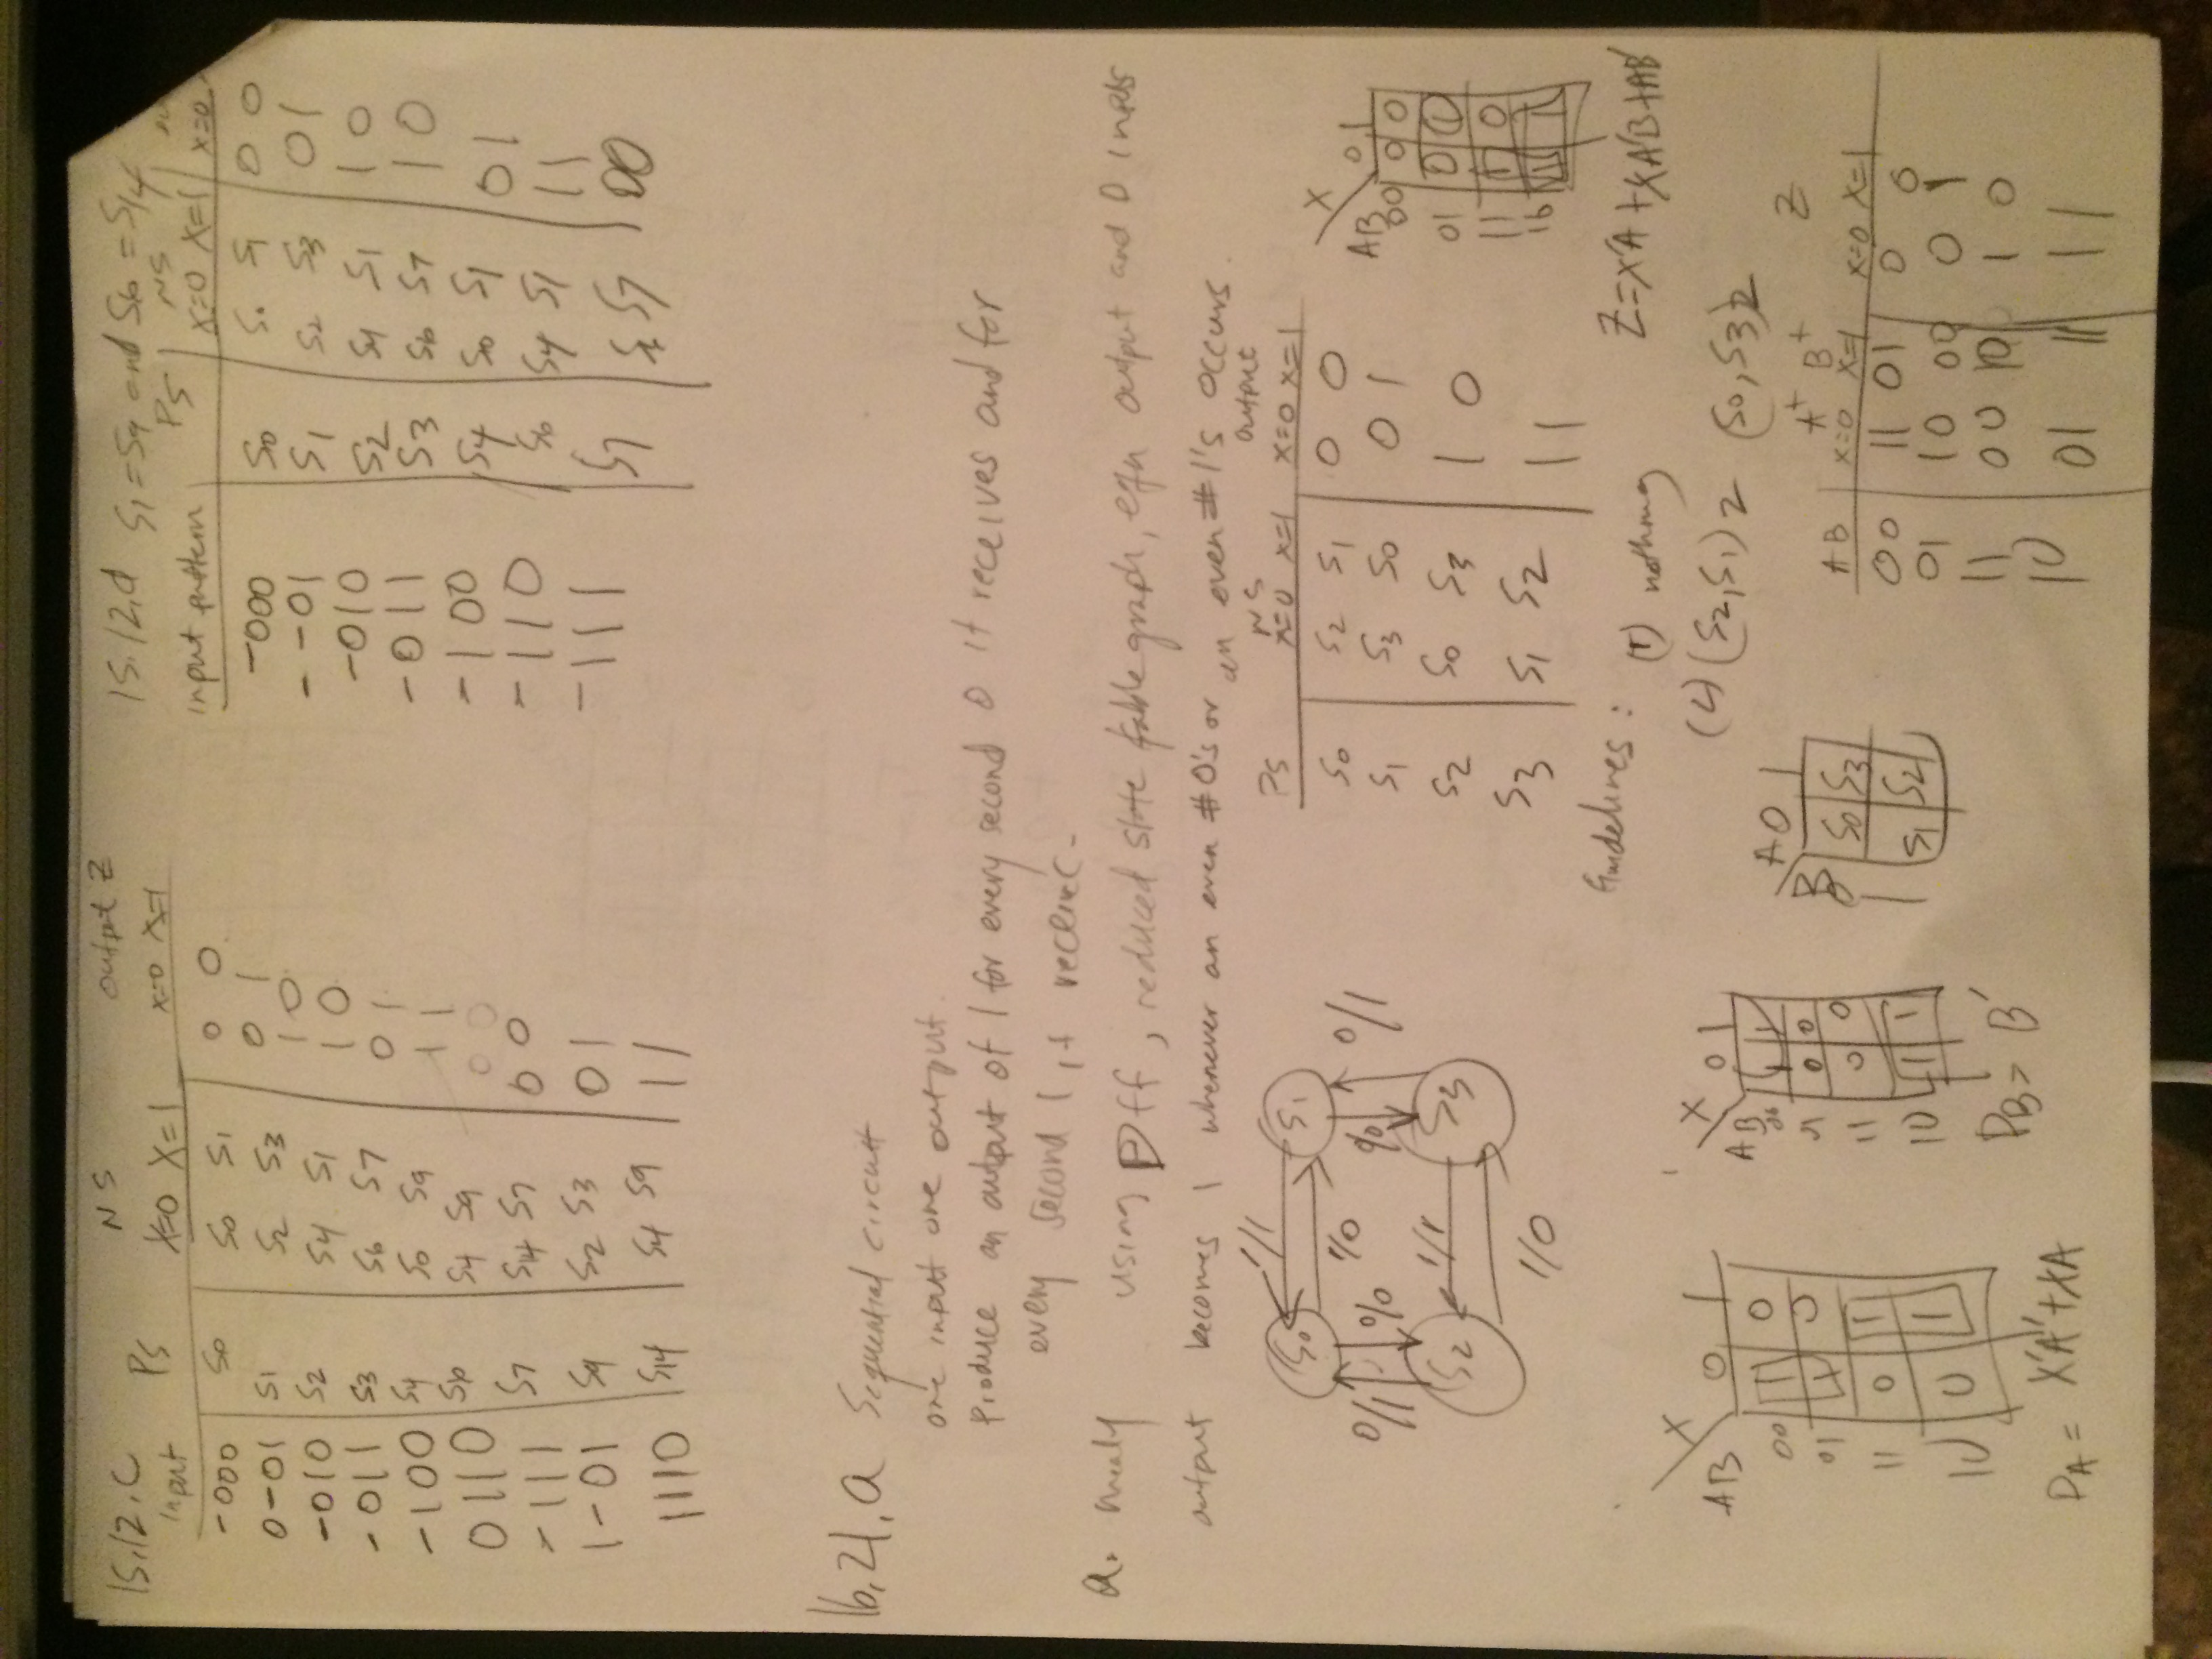 15.12.c
NS output Z
input PS X=0 X=1 x=0 x=1
-000 S0 S0 S1 0 0
0-01 S1 S2 S3 0 1
-010 S2 S4 S1 1 0
-011 S3 S6 S7 1 0
-100 S4 S0 S9 0 1
0110 S6 S4 S9 1 1
-111 S7 S14 S7 0 0
1-01 S9 S2 S3 0 1
1110 S14 S4 S9 1 1
15.12.d S1=S9 and S6=S14
PS NS
input pattern X=0 X=1 x=0
-000 S0 S0 S1 0 0
--01 S1 S2 S3 0 1
-010 S2 S4 S1 1 0
-011 S3 S6 S7 1 0
-100 S4 S0 S1 0 1
-110 S6 S4 S1 1 1
-111 S7 S7 00
16.21.a Sequential circuit
one input one output.
Produce an output of 1 for every second 0 it receives and for
every second 1 it
a. mealy using D ff, reduced state graph, eqn output and D inputs
output becomes 1 whenever an even #0's or an even #1's occurs.
S0 1/1 S1
1/0
0/1 0/0 0/0 0/1
S2 1/1 S3
1/0
PS NS output
x=0 x=1 x=0 x=1
S0 S2 S1 0 0
S1 S3 S0 0 1
S2 S0 S3 1 0
S3 S1 S2 1 1
X
AB 0 1
00 0 0
01 0 1
11 1 0
10 1 1
Z=X'A+XA'B+AB'
Guidelines: (1) nothing
(2) (S2,S1)2 (S0,S3)2
X
AB 0 1
00 1 0
01 1 0
11 0 1
10 0 1
DA = X'A'+XA
X
AB 0 1
00 1 1
01 0 0
11 0 0
10 1 1
DB = B'
A 0 1
B
0 S0 S3
1 S1 S2
A+ B+ Z
AB x=0 x=1 x=0 x=1
00 11 01 0 0
01 10 00 0 1
11 00 10 1 0
10 01 11 1 1